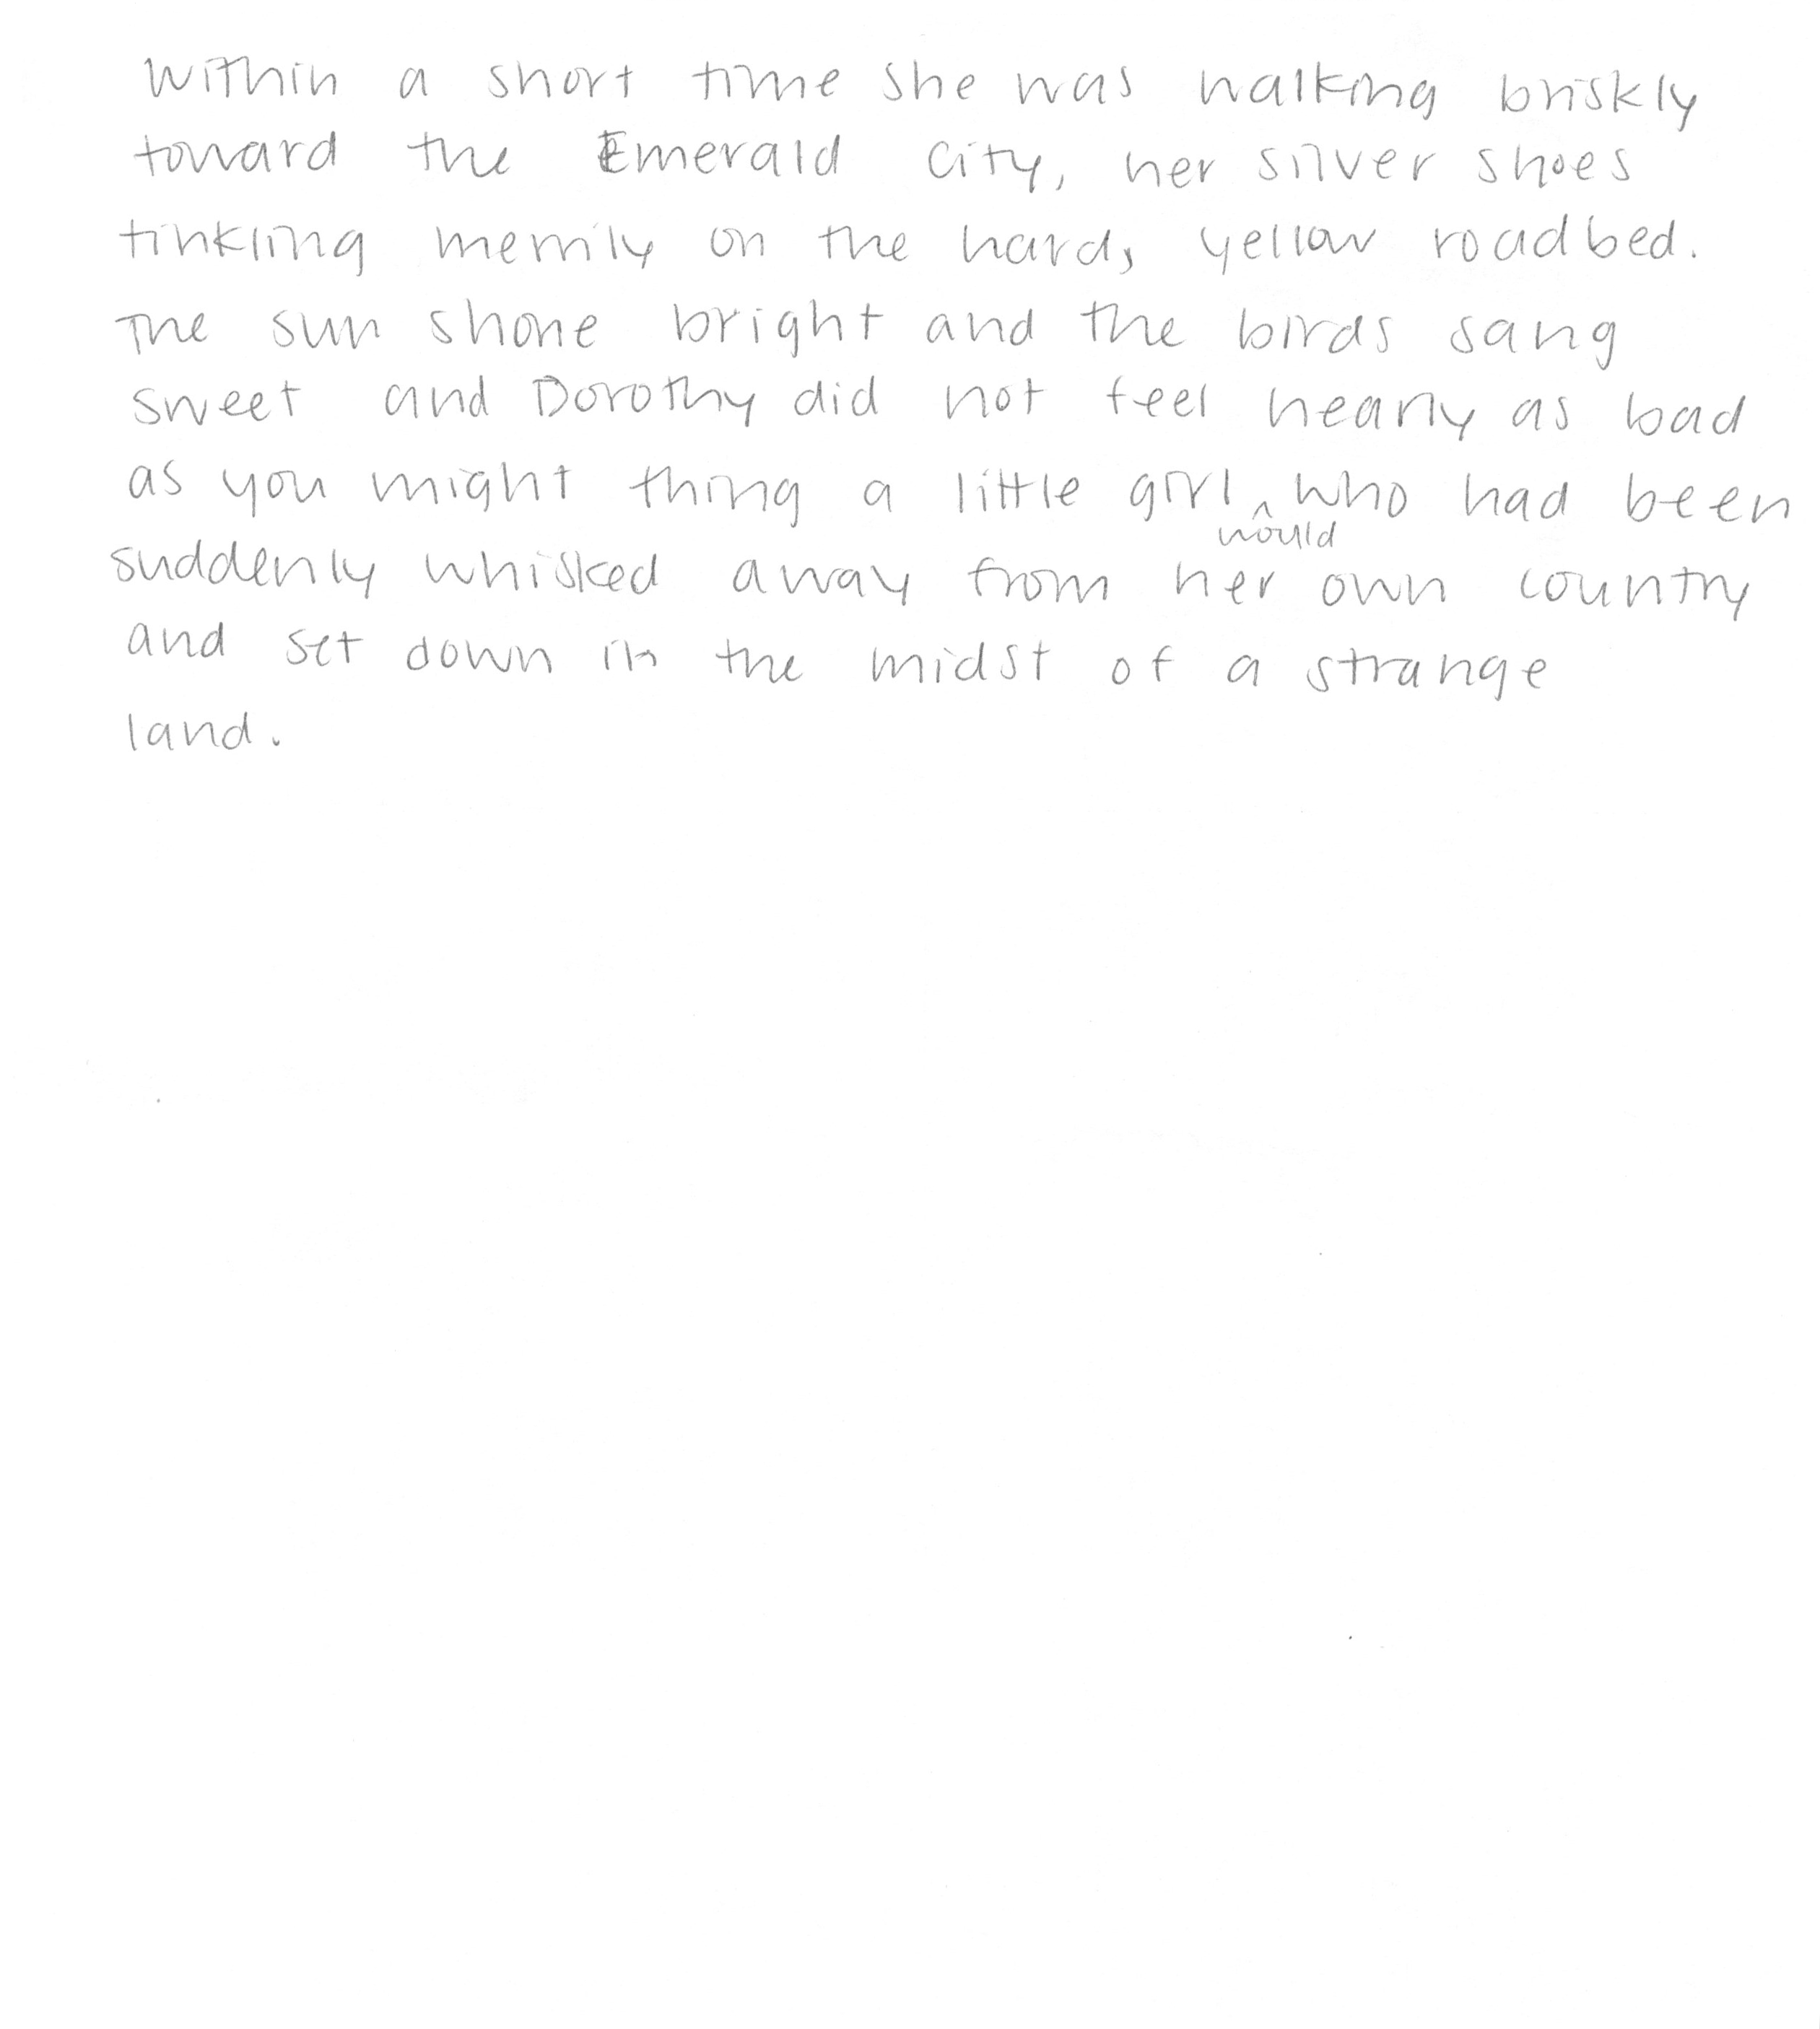 Within a short time she was walking briskly
toward the Emerald City, her silver shoes
tinkling merrily on the hard, yellow roadbed.
The sun shone bright and the birds sang
sweet and Dorothy did not feel nearly as bad
as you might thing a little girl would who had been
suddenly whisked away from her own country
and set down in the midst of a strange
land.